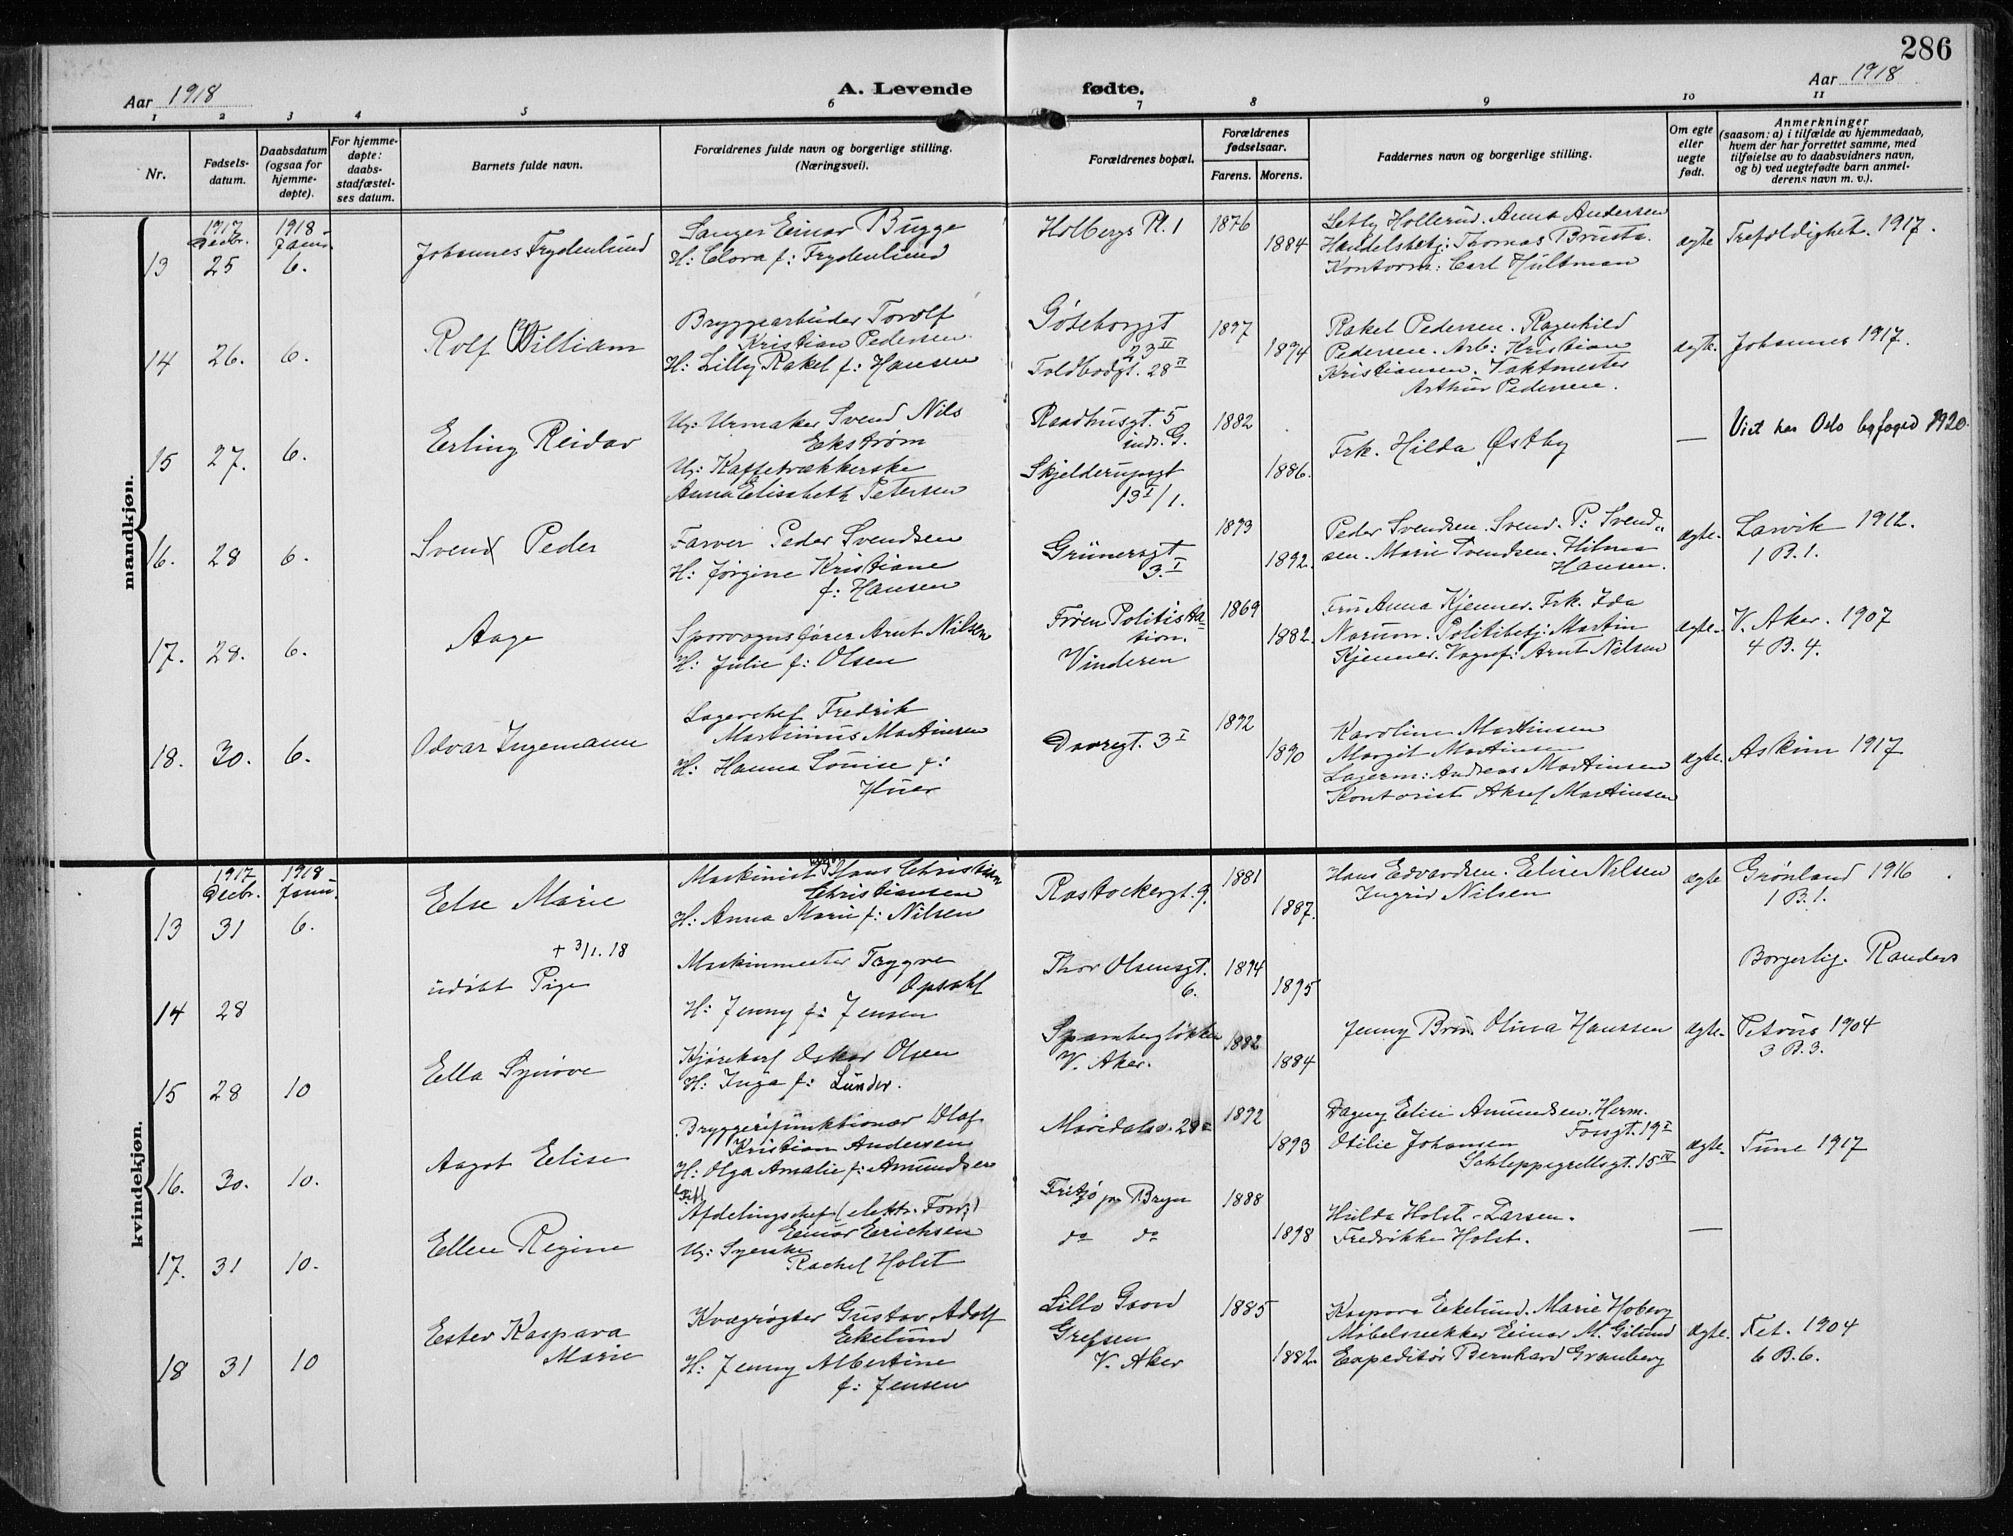 286
Aar 1918
A. Levende fødte.
Aar 1918
1 2 3 4 5 6 7 8 9 10 11
Nr.
Fødsels-
datum.
Daabsdatum
(ogsaa for
hjemme-
døpte).
For hjemme-
døpte:
daabs-
stadfæstel-
ses datum.
Barnets fulde navn.
Forældrenes fulde navn og borgerlige stilling.
(Næringsvei).
Forældrenes bopæl.
Forældrenes
fødselsaar.
Farens. Morens.
Faddernes navn og borgerlige stilling.
Om egte
eller
uegte
født.
Anmerkninger
(saasom: a) i tilfælde av hjemmedaab,
hvem der har forrettet samme, med
tilføielse av to daabsvidners navn,
og b) ved uegtefødte barn anmel-
derens navn m. v.).
mandkjøn.
1917 1918
Decbr. Janu.
13 25 6.
Johannes Frydenlund
Sanger Einar Bugge
H: Clara f: Frydenlund
Holbergs Pl. 1
1876
1884
Hollerud. Anna Andersen
Handelsbetj: Thomas Brusta.
Kontorm: Carl Hultman
ægte
Trefoldighet. 1917.
14 26. 6.
Rolf William
Bryggearbeider Torolf
Kristian Pedersen.
H: Lilly Rakel f: Hansen
Göteborggt
23 II
Toldbodgt. 28 II
1897
1894
Rakel Pedersen. Ragnhild
Pedersen. Arb: Kristian
Kristiansen. Vaktmester
Arthur Pedersen.
ægte.
Johannes 1917.
15 27. 6.
Erling Reidar
Ug: Urmaker Svend Nils
Ekstrøm
Ug: Kaffetrækkerske
Anna Elisabeth Petersen
Raadhusgt. 5
indr. G.
Skjelderupsgt
13 I/1.
1882
1886.
Frk. Hilda Østby
—
Viet hos Oslo byfoged 1920.
16. 28 6.
Sven Peder
Farver Peder Svendsen
H: Jørgine Kristiane
f: Hansen
Grünersgt
3. I
1893
1892.
Peder Svendsen. Svend. P: Svend"
sen. Marie Svendsen. Hilma
Hansen.
ægte.
Larvik 1912.
1 B. 1.
17. 28. 6.
Aage
Sporvognsfører Arnt Nilsen
H: Julie f: Olsen
Frøen Politista-
tion.
Vinderen
1869
1882.
Fru Anna Kjenner. Frk. Ida
Norum. Politibetj: Martin
Kjenner. Vognf: Arnt Nilsen
ægte.
V. Aker. 1907
4 B. 4.
18. 30. 6.
Odvar Ingemann
Lagerchef Fredrik
Martinius Martinsen
H: Hanna Louise f:
Huer
Dovregt. 3 I
1892
1890
Karoline Martinsen
Margit Martinsen
Lagerm: Andreas Martinsen
Kontorist Aksel Martinsen
ægte.
Askim 1917
kvindekjøn.
1917 1918
Decbr. Janu.
13 31 6.
Else Marie
Maskinist Hans Christian
Christiansen
H: Anna Marie f: Nilsen
Rostockergt. 9.
1881
1887.
Hans Edvardsen. Elise Nilsen
Ingrid Nilsen
ægte
Grønland 1916
1 B. 1.
14 28
+ 3/1. 18
udøbt Pige
Maskinmester Trygve
Opsahl
H: Jenny f: Jensen
Thor Olsensgt.
6.
1894
1895
Borgerlig. Randers
15 28 10
Ella Synøve
Kjørekarl Oskar Olsen
H: Inga f: Lunder.
V. Aker.
1882
1884
Jenny Bruu Olina Hanssen
ægte.
Petrus 1904
3 B. 3.
16. 30. 10.
Aagot Elise
Bryggerifunktionær Olaf
Kristian Andersen
H: Olga Amalie f: Amundsen
Maridalsv. 28 II
1892
1893
Dagny Elise Amundsen. Herm.
Fossgt. 19 I
Otilie Johansen
Schleppegrellsgt. 15 IV
ægte.
Tune 1917
17. 31 10.
Ellen Regine
Afdelingschef (elektr. Forr.)
Einar Erichsen
Ug: Syerske
Rachel Holst
Fritzø pr Bryn
do do
1888
1898
Hulda Holst-Larsen.
Fredrikke Holst.
—
18 31 10
Ester Kaspara
Marie
Kvægrøgter Gustav Adolf
Ekelund
H: Jenny Albertine
f: Jensen
Lillo Gaard
Grefsen
V. Aker
1885
1882.
Kaspara Ekelund. Marie Hoberg
Møbelsnekker Einar M. Gilund
Expeditør Bernhard Granberg
ægte.
Fet. 1904
6 B. 6.